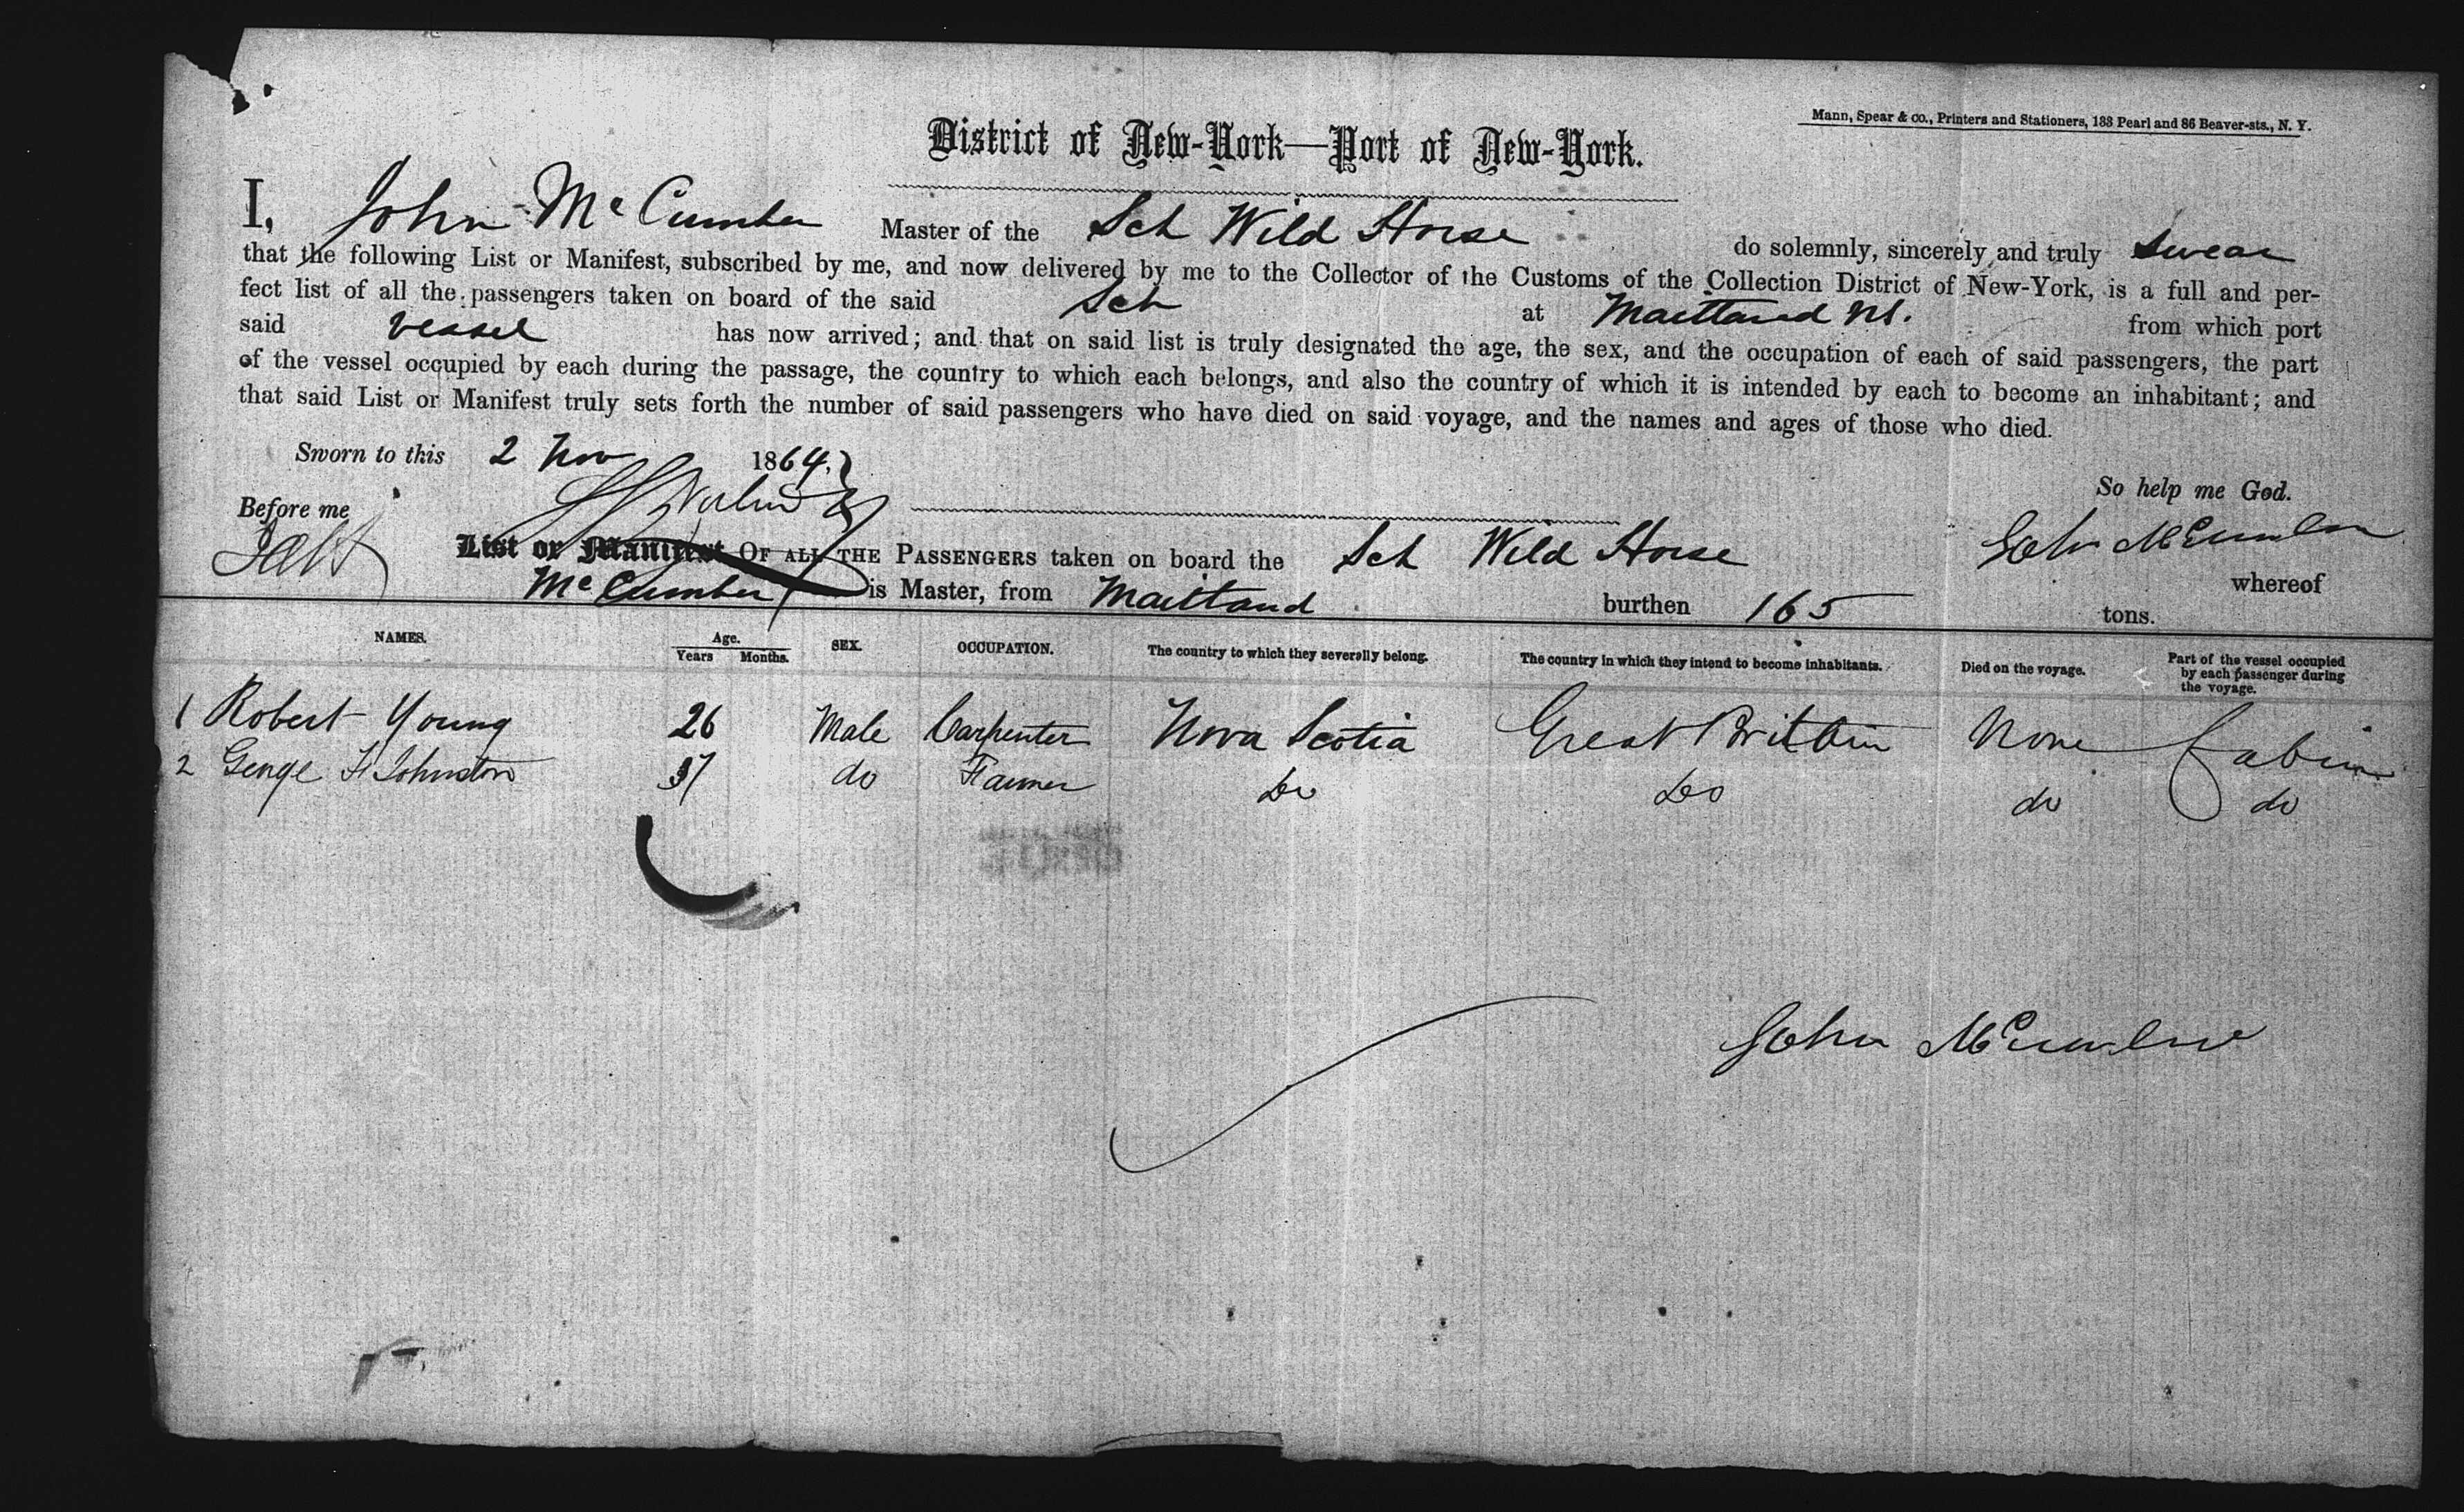 Mann, Spear & co., Printers and Stationers, 133 Pearl and 86 Beaver-sts., N. Y.
District of New-York—Port of New-York.
I, John McCumber Master of the Sch Wild Horse do solemnly, sincerely and truly swear
that the following List or Manifest, subscribed by me, and now delivered by me to the Collector of the Customs of the Collection District of New-York, is a full and per-
fect list of all the passengers taken on board of the said Sch at Maitland NS. from which port
said vessel has now arrived; and that on said list is truly designated the age, the sex, and the occupation of each of said passengers, the part
of the vessel occupied by each during the passage, the country to which each belongs, and also the country of which it is intended by each to become an inhabitant; and
that said List or Manifest truly sets forth the number of said passengers who have died on said voyage, and the names and ages of those who died.
Sworn to this 2 Nov 1864.
So help me God.
Before me
John McCumber
List or Manifest OF ALL THE PASSENGERS taken on board the Sch Wild Horse whereof
McCumber is Master, from Maitland burthen 165 tons.
NAMES. Age. Years Months. SEX. OCCUPATION. The country to which they severally belong. The country in which they intend to become inhabitants. Died on the voyage. Part of the vessel occupied by each passenger during the voyage.
1 Robert Young 26 Male Carpenter Nova Scotia Great Brittain None Cabin
2 George F Johnston 37 do Farmer Do Do do do
John McCumber